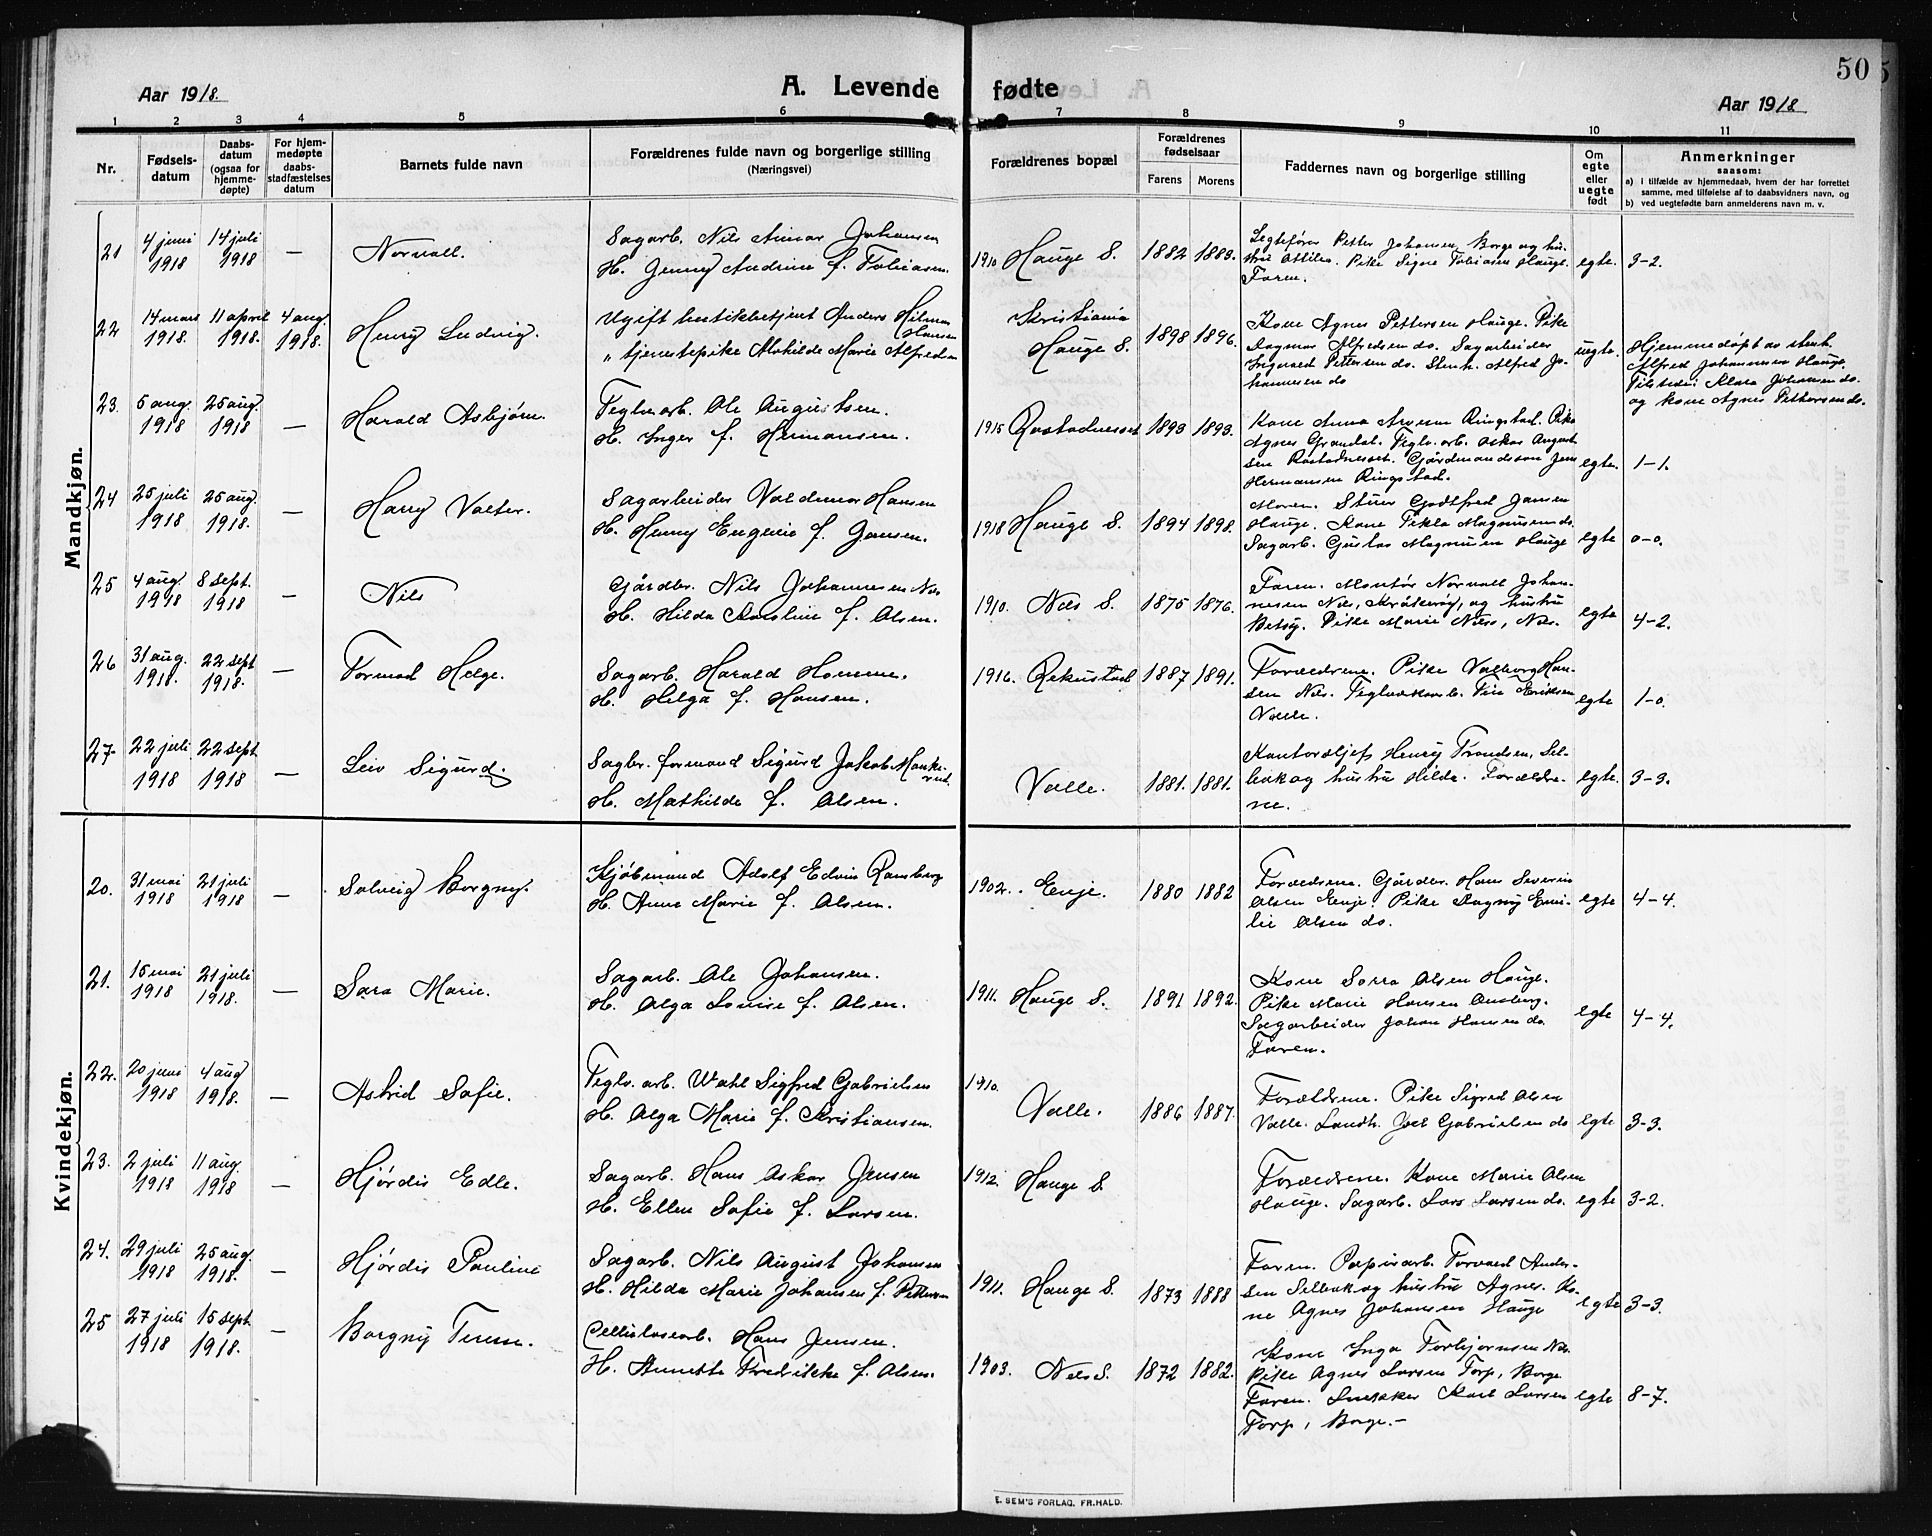 50
Aar 1918. A. Levende fødte Aar 1918
1 2 3 4 5 6 7 8 9 10 11
Nr. Fødselsdatum Daabsdatum (ogsaa for hjemmedøpte) For hjemmedøpte daabs stadfæstelses datum Barnets fulde navn Forældrenes fulde navn og borgerlige stilling (Næringsvei) Forældrenes bopæl Forældrenes fødselsaar Farens Morens Faddernes navn og borgerlige stilling Om egte eller uegte født Anmerkninger saasom:
a) i tilfælde av hjemmedaab, hvem der har forrettet samme, med tilføielse af to daabsvidners navn, og
b) ved uegtefødte barn anmelderens navn m. v.
Mandkjøn.
21 4 juni 1918 14 juli 1918 — Norvall.
Sagarb. Nils Aimar Johansen
H. Jenny Andrine f. Tobiasen.
1910 Hauge S. 1882 1883.
Petter Johansen, Borge og hustru Pike Signe Tobiasen Hauge.
Faren.
egte. 3-2.
22 14 mars 1918. 11 april 1918. 4 aug. 1918. Henry Ludvig.
Ugift butikbetjent Anders Hilmar Hansen
„ tjenestepike Mathilde Marie Alfredsen
Kristiania
Hauge S. 1898 1896.
Kone Agnes Pettersen Hauge. Pike
Dagmar Alfredsen do. Sagarbeider
Ingvald Pettersen do. Stenh. Alfred Johannesen do
uegte.
Hjemmedøpt av stenh.
Alfred Johannesen Hauge.
Tilstede: Klara Johansen do.
og kone Agnes Pettersen do.
23. 5 aug. 1918 25 aug. 1918 — Harald Asbjørn.
Teglv.arb. Ole Augustsen.
H. Inger f. Hermansen.
1915 Rostadneset 1893 1893.
Kone Anna Ringstad. Pike
Agnes Grandal. Teglv. arb. Oskar Augustsen Rostadneset. Gårdmandssøn Jens
Hermansen Ringstad.
egte. 1-1.
24 25 juli 1918 25 aug. 1918. — Harry Valter.
Sagarbeider Valdemar Hansen
H. Henny Eugenie f. Jansen.
1918 Hauge S. 1894 1898.
Moren. Stuer Godtfred Jansen
Hauge. Kone Tekla Magnussen do.
Sagarb. Gustav Magnussen Hauge
egte 0-0.
25 4 aug. 1918 8 sept. 1918 — Nils
Gårdbr. Nils Johannesen Næs
H. Hilda Karoline f. Olsen.
1910. Næs S. 1875 1876.
Faren. Montør Norvall Johannesen Næs, Kråkerøy, og hustru
Betsy. Pike Marie Næss, Næs.
egte 4-2.
26 31 aug. 1918. 22 sept 1918. — Tormod Helge.
Sagarb. Harald Homme.
H. Helga f. Hansen.
1916. Rekustad 1887 1891.
Forældrene. Pike Valborg Hansen Næs. Eriksen
Valle.
egte 1-0.
27. 22 juli 1918 22 sept. 1918 — Leiv Sigurd.
Sagbr. formand Sigurd Jakob
H. Mathilde f. Olsen.
Valle. 1881. 1881.
Kontorchef Henry Trondsen, Selbak og hustru Hilda. Forældrene.
egte. 3-3.
Kvindekjøn.
20. 31 mai 1918 21 juli 1918 — Solveig Borgny.
Kjøbmand Adolf Edvin Ramberg
H. Anne Marie f. Olsen.
1902. Evje. 1880 1882
Forældrene. Gårdbr. Hans Severin
Olsen Evje. Pike Dagny Emilie Olsen do.
egte 4-4.
21. 15 mai 1918 21 juli 1918. — Sara Marie.
Sagarb. Ole Johansen.
H. Olga Lovise f. Olsen.
1911. Hauge S. 1891 1892.
Kone Sorra Olsen Hauge.
Pike Marie Hansen
Sagarbeider Johan Hansen do.
Faren.
egte 4-4.
22. 20 juni 1918 4 aug 1918. — Astrid Sofie.
Teglv. arb. Wahl Sigfred Gabrielsen
H. Olga Marie f. Kristiansen.
1910. Valle. 1886 1887.
Forældrene. Pike Sigrid Olsen
Valle. Landh. Joel Gabrielsen do
egte 3-3.
23. 2 juli 1918 11 aug. 1918 — Hjørdis Edle.
Sagarb. Hans Oskar Jensen
H. Ellen Sofie f. Larsen.
1912. Hauge S.
Forældrene. Kone Marie Olsen
Hauge. Sagarb. Lars Larsen do.
egte 3-2.
24. 29 juli 1918 25 aug. 1918. — Hjørdis Pauline
Sagarb. Nils August Johansen
H. Hilda Marie Johansen f. Pettersen
1911. Hauge S. 1873 1888
Faren. Papirarb. Torvald Andersen Selbak og hustru Agnes. Kone Agnes Johansen Hauge
egte 3-3.
25 27 juli 1918 15 sept. 1918. — Borgny Terese.
Cellulosearb. Hans Jensen.
H. Annette Fredrikke f. Olsen.
1903. Næs S. 1872 1882.
Kone Inga Torbjørnsen Næs.
Pike Agnes Larsen Torp, Borge
Faren. Snekker Karl Larsen
Torp, Borge.-
egte 8-7.
E. SEM'S FORLAG, FR.HALD.